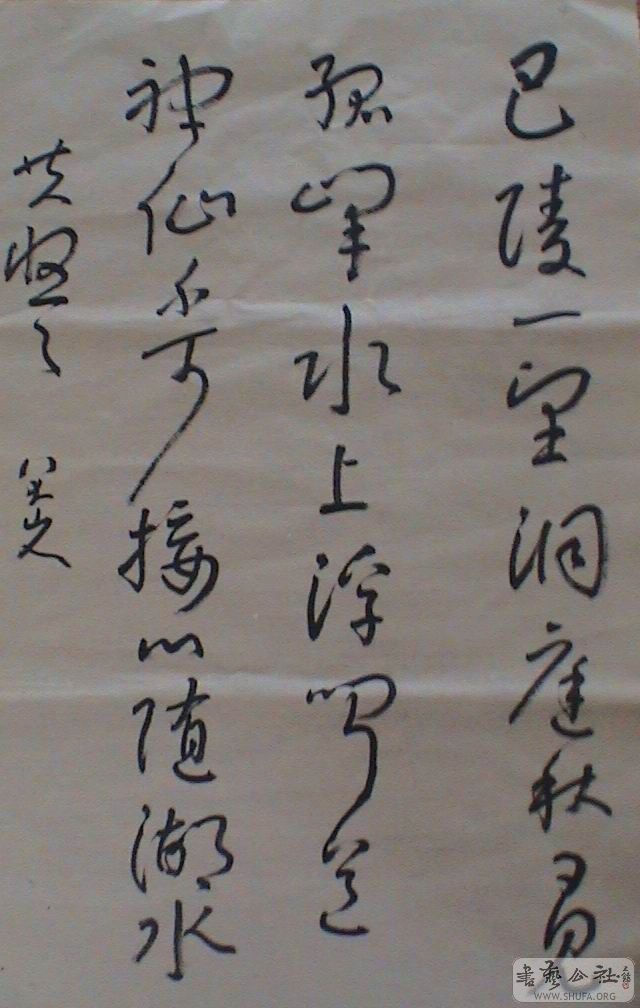 巴陵一望洞庭秋日见
孤峰水上浮闻道
神仙不可接心随湖水
共悠々 八大山人
書藝公社
WWW.SHUFA.ORG